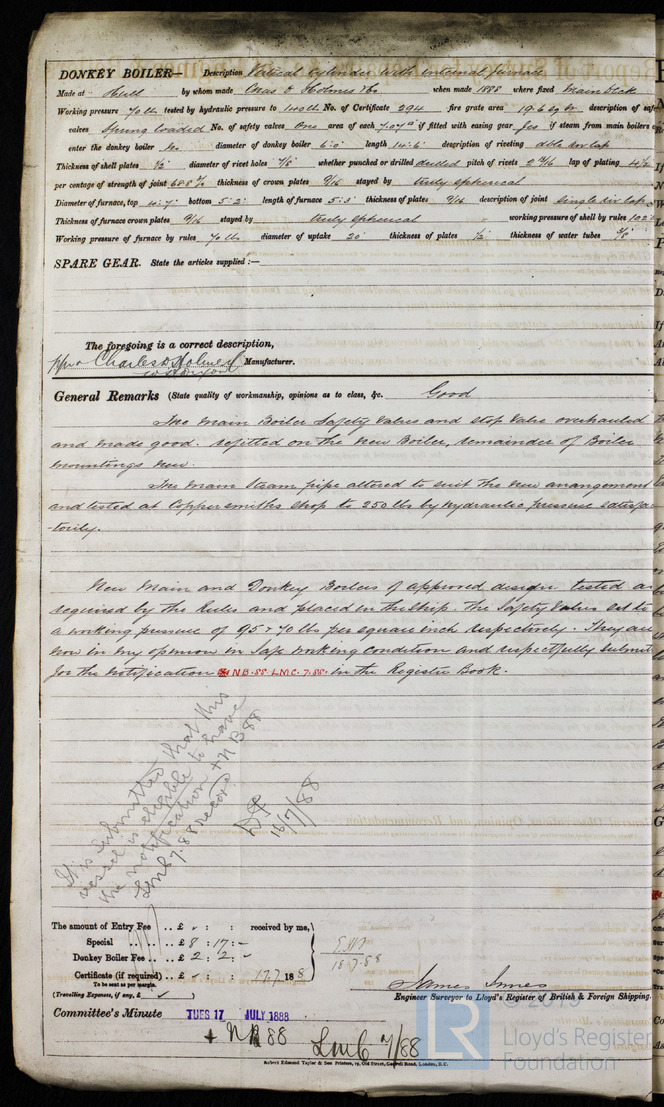 DONKEY BOILER— Description Vertical Cylinder with internal furnace
Made at Hull by whom made Chas D Holmes & Co when made 1888 where fixed Main Deck
Working pressure 70 lb tested by hydraulic pressure to 140 lb No. of Certificate 294 fire grate area 19.6 sq ft description of safe
valves Spring loaded No. of safety valves One area of each 7.07" if fitted with easing gear yes if steam from main boilers
enter the donkey boiler No diameter of donkey boiler 6'.0" length 14'.6" description of riveting dble riv lap
Thickness of shell plates 1/2 diameter of rivet holes 7/8 whether punched or drilled drilled pitch of rivets 2 13/16 lap of plating 4 1/2
per centage of strength of joint 68.8% thickness of crown plates 9/16 stayed by truly spherical
Diameter of furnace, top 4'.7" bottom 5'.2" length of furnace 5'.5" thickness of plates 9/16 description of joint single riv lap
Thickness of furnace crown plates 9/16 stayed by truly spherical working pressure of shell by rules 102
Working pressure of furnace by rules 70 lb diameter of uptake 20" thickness of plates 1/2 thickness of water tubes 3/8
SPARE GEAR. State the articles supplied:—
The foregoing is a correct description,
Charles D Holmes Manufacturer.
General Remarks (State quality of workmanship, opinions as to class, &c. Good
The Main Boiler Safety Valves and stop valve overhauled
and made good. refitted on the New Boiler, remainder of Boiler
mountings New.
The Main Steam pipe altered to suit the new arangement
and tested at Coppersmiths shop to 250 lbs by hydraulic pressure satisfac
-torily.
New Main and Donkey Boilers of approved design tested as
required by the Rules and placed in the ship. The Safety Valves set to
a working pressure of 95 & 70 lbs per square inch respectively. They are
now in my openion in Safe working Condition and respectfully submit
for the Notification NB.88. LMC.7.88. in the Register Book.
It is submitted that this
vessel is eligible to have
the notification + NB 88
LMC 7.88 record
16/7/88
The amount of Entry Fee .. £ : : received by me,
Special .... .. £ 8 : 17 : -
Donkey Boiler Fee .. £ 2 : 2 : -
Certificate (if required) .. £ : : 17.7 1888
To be sent as per margin.
(Travelling Expenses, if any, £ )
18.7.88
James Innes
Engineer Surveyor to Lloyd's Register of British & Foreign Shipping.
Committee's Minute TUES 17 JULY 1888
+ NB 88 LMC 7/88
Robert Edmund Taylor & Son Printers, 19, Old Street, Goswell Road, London, E.C.
LR
Lloyd's Register
Foundation